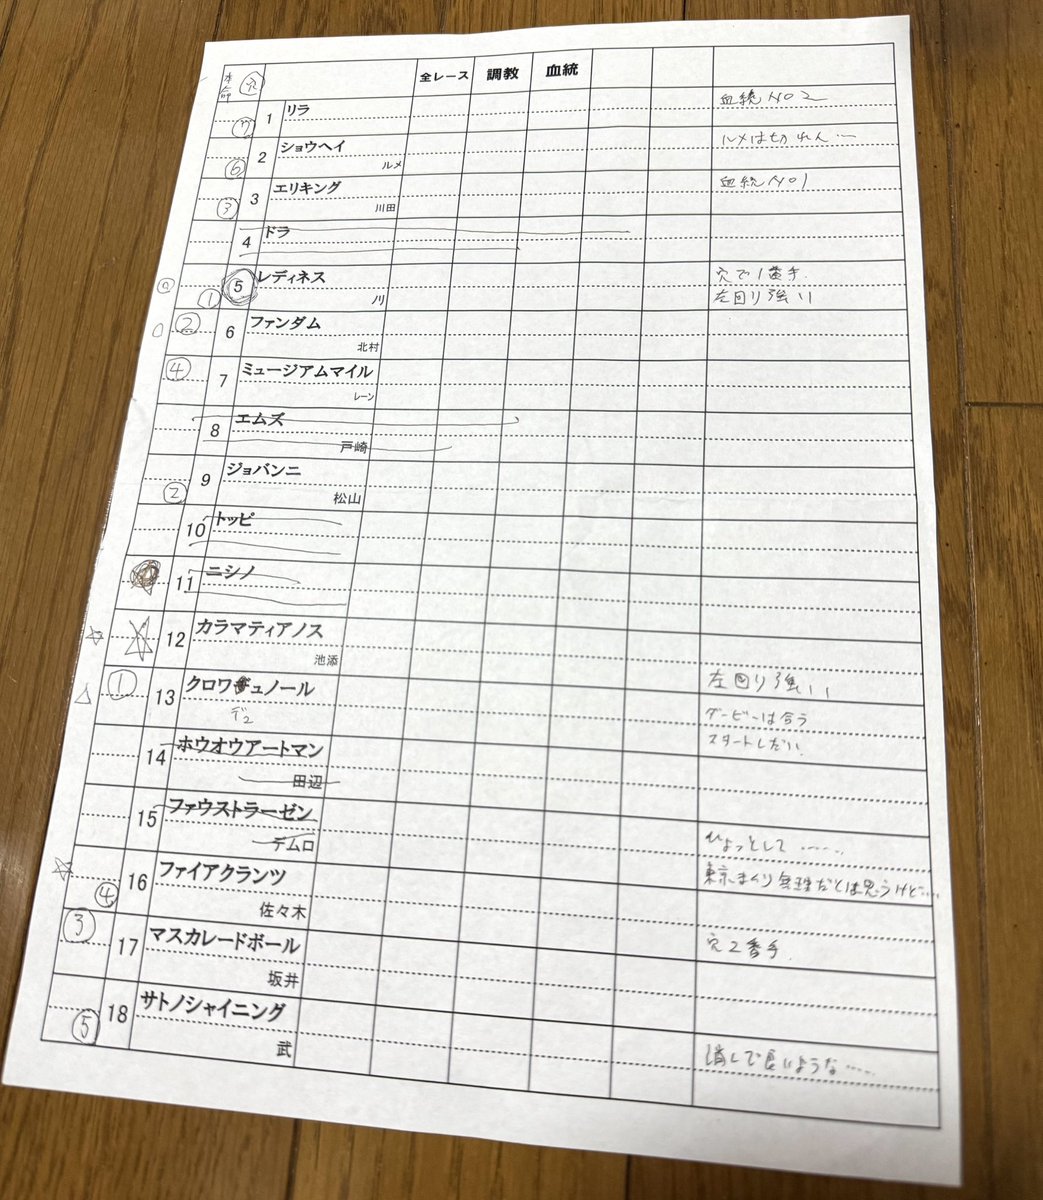 本命 穴 全レース 調教 血統
⑦ 1 リラ 血統 NO2
⑥ 2 ショウヘイ ルメはサれん…
ルメ
③ 3 エリキング 血統 NO1
川田
4 ドラ
◎ ① 5 レディネス 穴で1番手.
川 左回り強い
○ ② 6 ファンダム
北村
④ 7 ミュージアムマイル
レーン
8 エムズ
戸崎
② 9 ジョバンニ
松山
10 トッピ
11 ニシノ
☆ ☆ 12 カラマティアノス
池添
△ ① 13 クロワデュノール 左回り強い
ダービーは合う
14 ホウオウアートマン スタートしだい.
田辺
15 ファウストラーゼン
デムロ ひょっとして……
☆ ④ 16 ファイアクランツ 東京まくり無理だとは思うけど…
佐々木
③ 17 マスカレードボール 穴2番手.
坂井
⑤ 18 サトノシャイニング
武 消しで良いような……